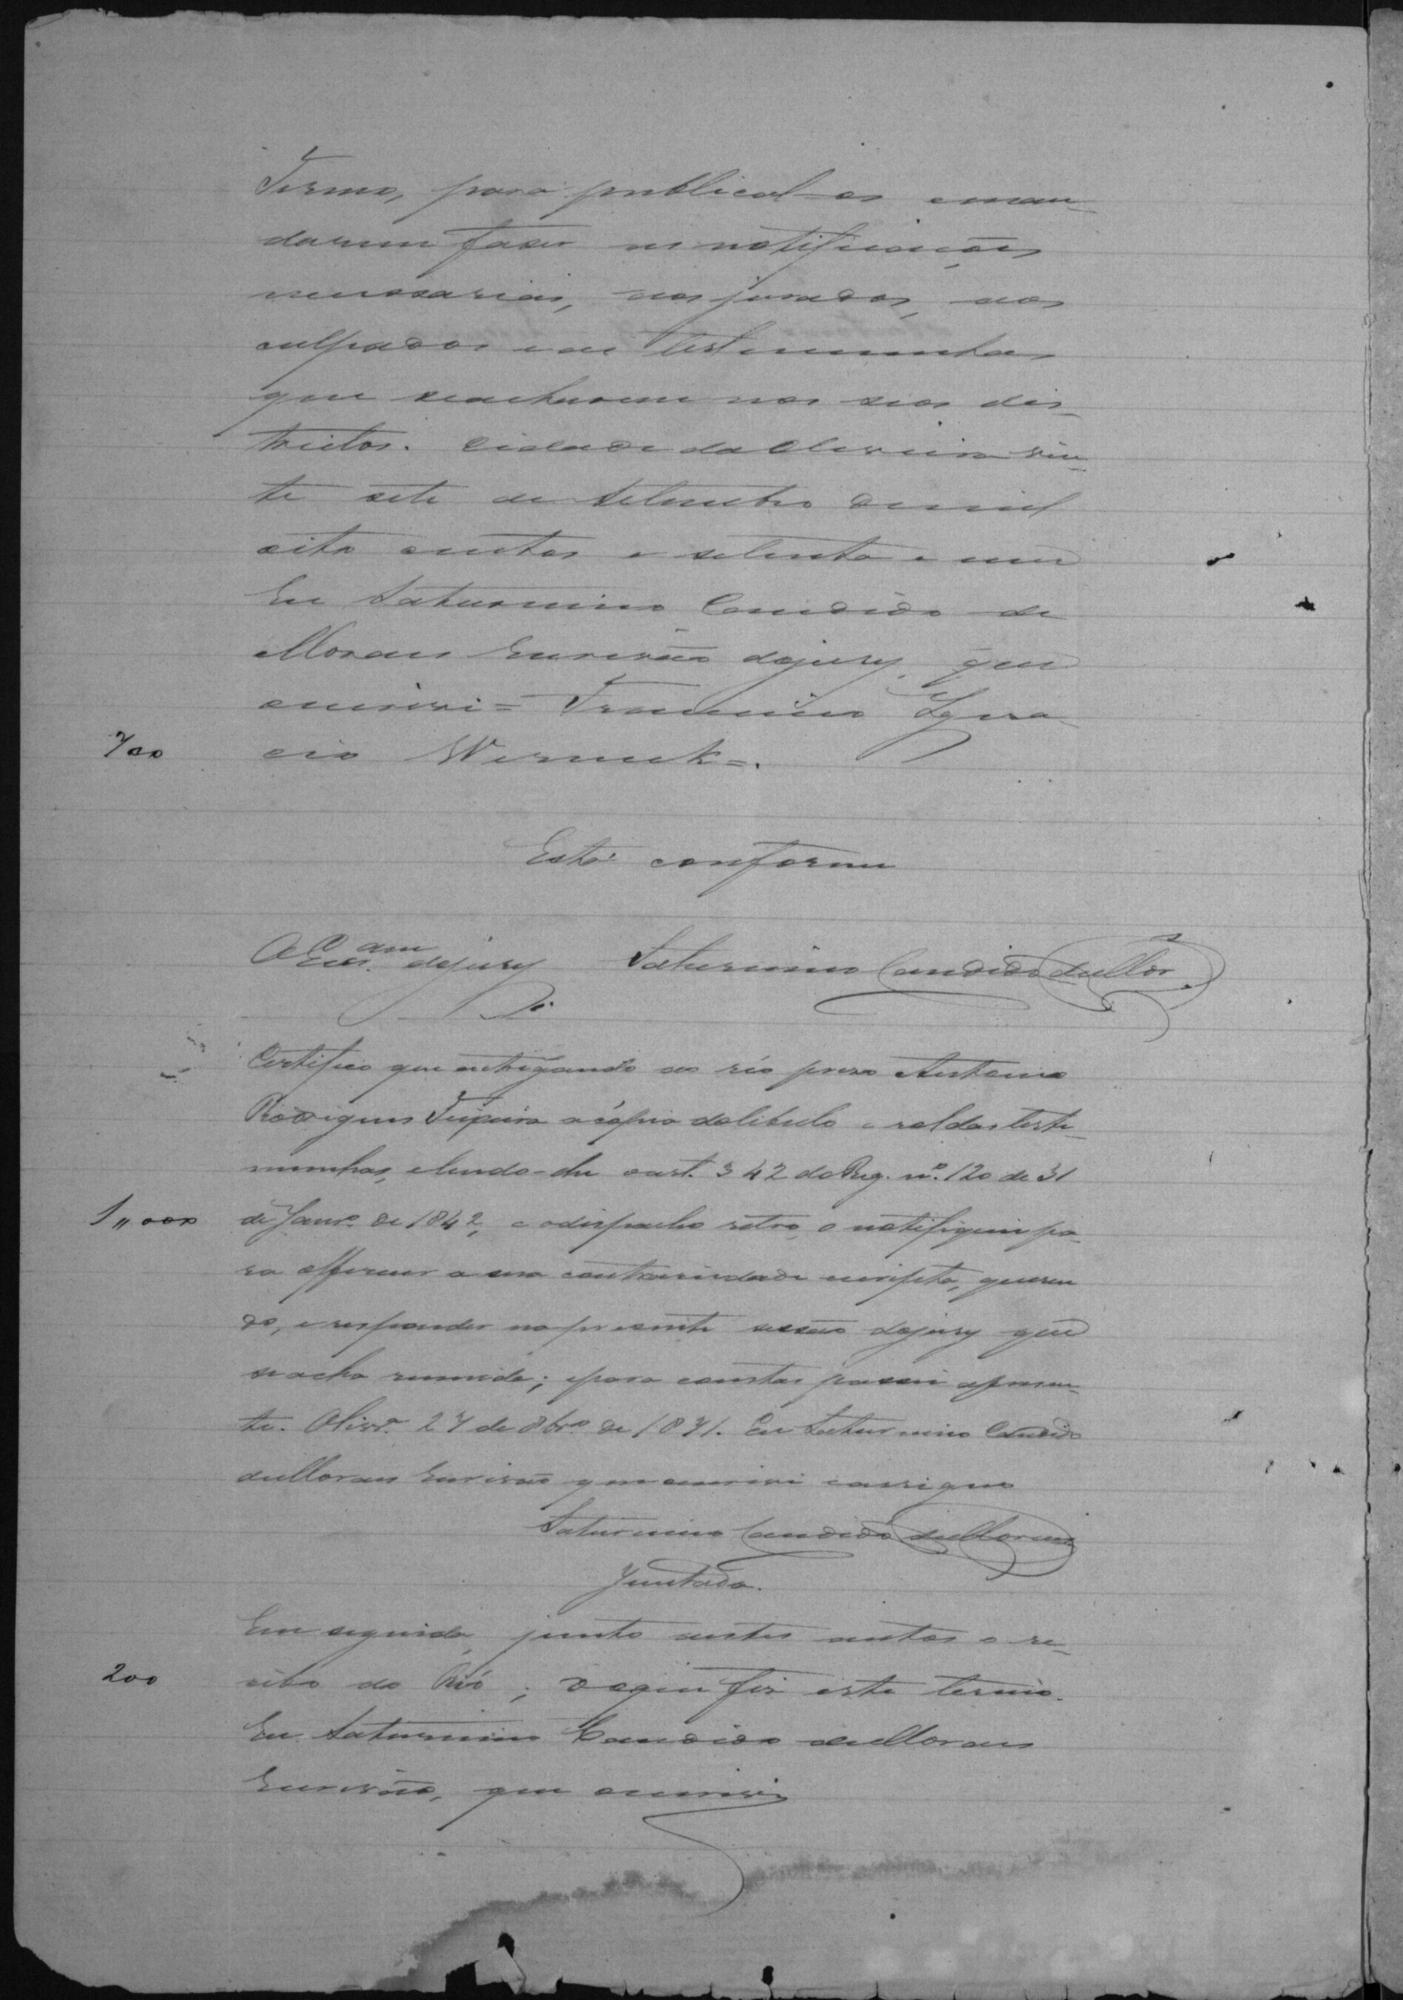 Termo, para publical-os e man-
darem faser as notificaçoes
necessarias, aos jurados, aos
culpados e as testemunhas
que se acharem nos seos dis-
trictos. Cidade da Oliveira vin-
te sete de Setembro de mil
oito centos e setenta e um
Eu Saturnino Candido de
Moraes Escrivão do jury, que
escrivi = Francisco Igna-
700 cio Werneck =.
Está conforme
O Escr.am do jury Saturnino Candido de Mor.
Certifico que entregando ao réo preso Antonio
Rodrigues Teixeira a cópia do libello e rol das teste-
munhas, e lendo-lhe o art. 342 do Reg. nº. 120 de 31
1,,000 de Janrº. de 1842, e o despacho retro, o notifiquei pa-
ra offerecer a sua contrariedade escripta, queren-
do, e responder na presente sessão do jury que
se acha reunida; e para constar passei a presen-
te. Olivrª. 27 de 8brº de 1871. Eu Saturnino Candido
de Moraes Escrivão que escrivi e assigno
Saturnino Candido de Moraes
Juntada.
Em seguida, junto a estes autos o re-
200 cibo do Réo; do que fiz este termo.
Eu Saturnino Candido de Moraes
Escrivão, que escrivi